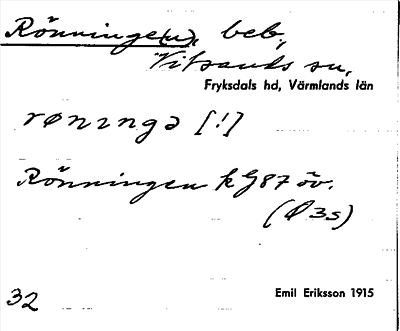 Rönninge(n), beb.,
Vitsands sn,
Fryksdals hd, Värmlands län
rønıŋgə [!]
Rönningen k G87 öv.
(Ø 3s)
32
Emil Eriksson 1915